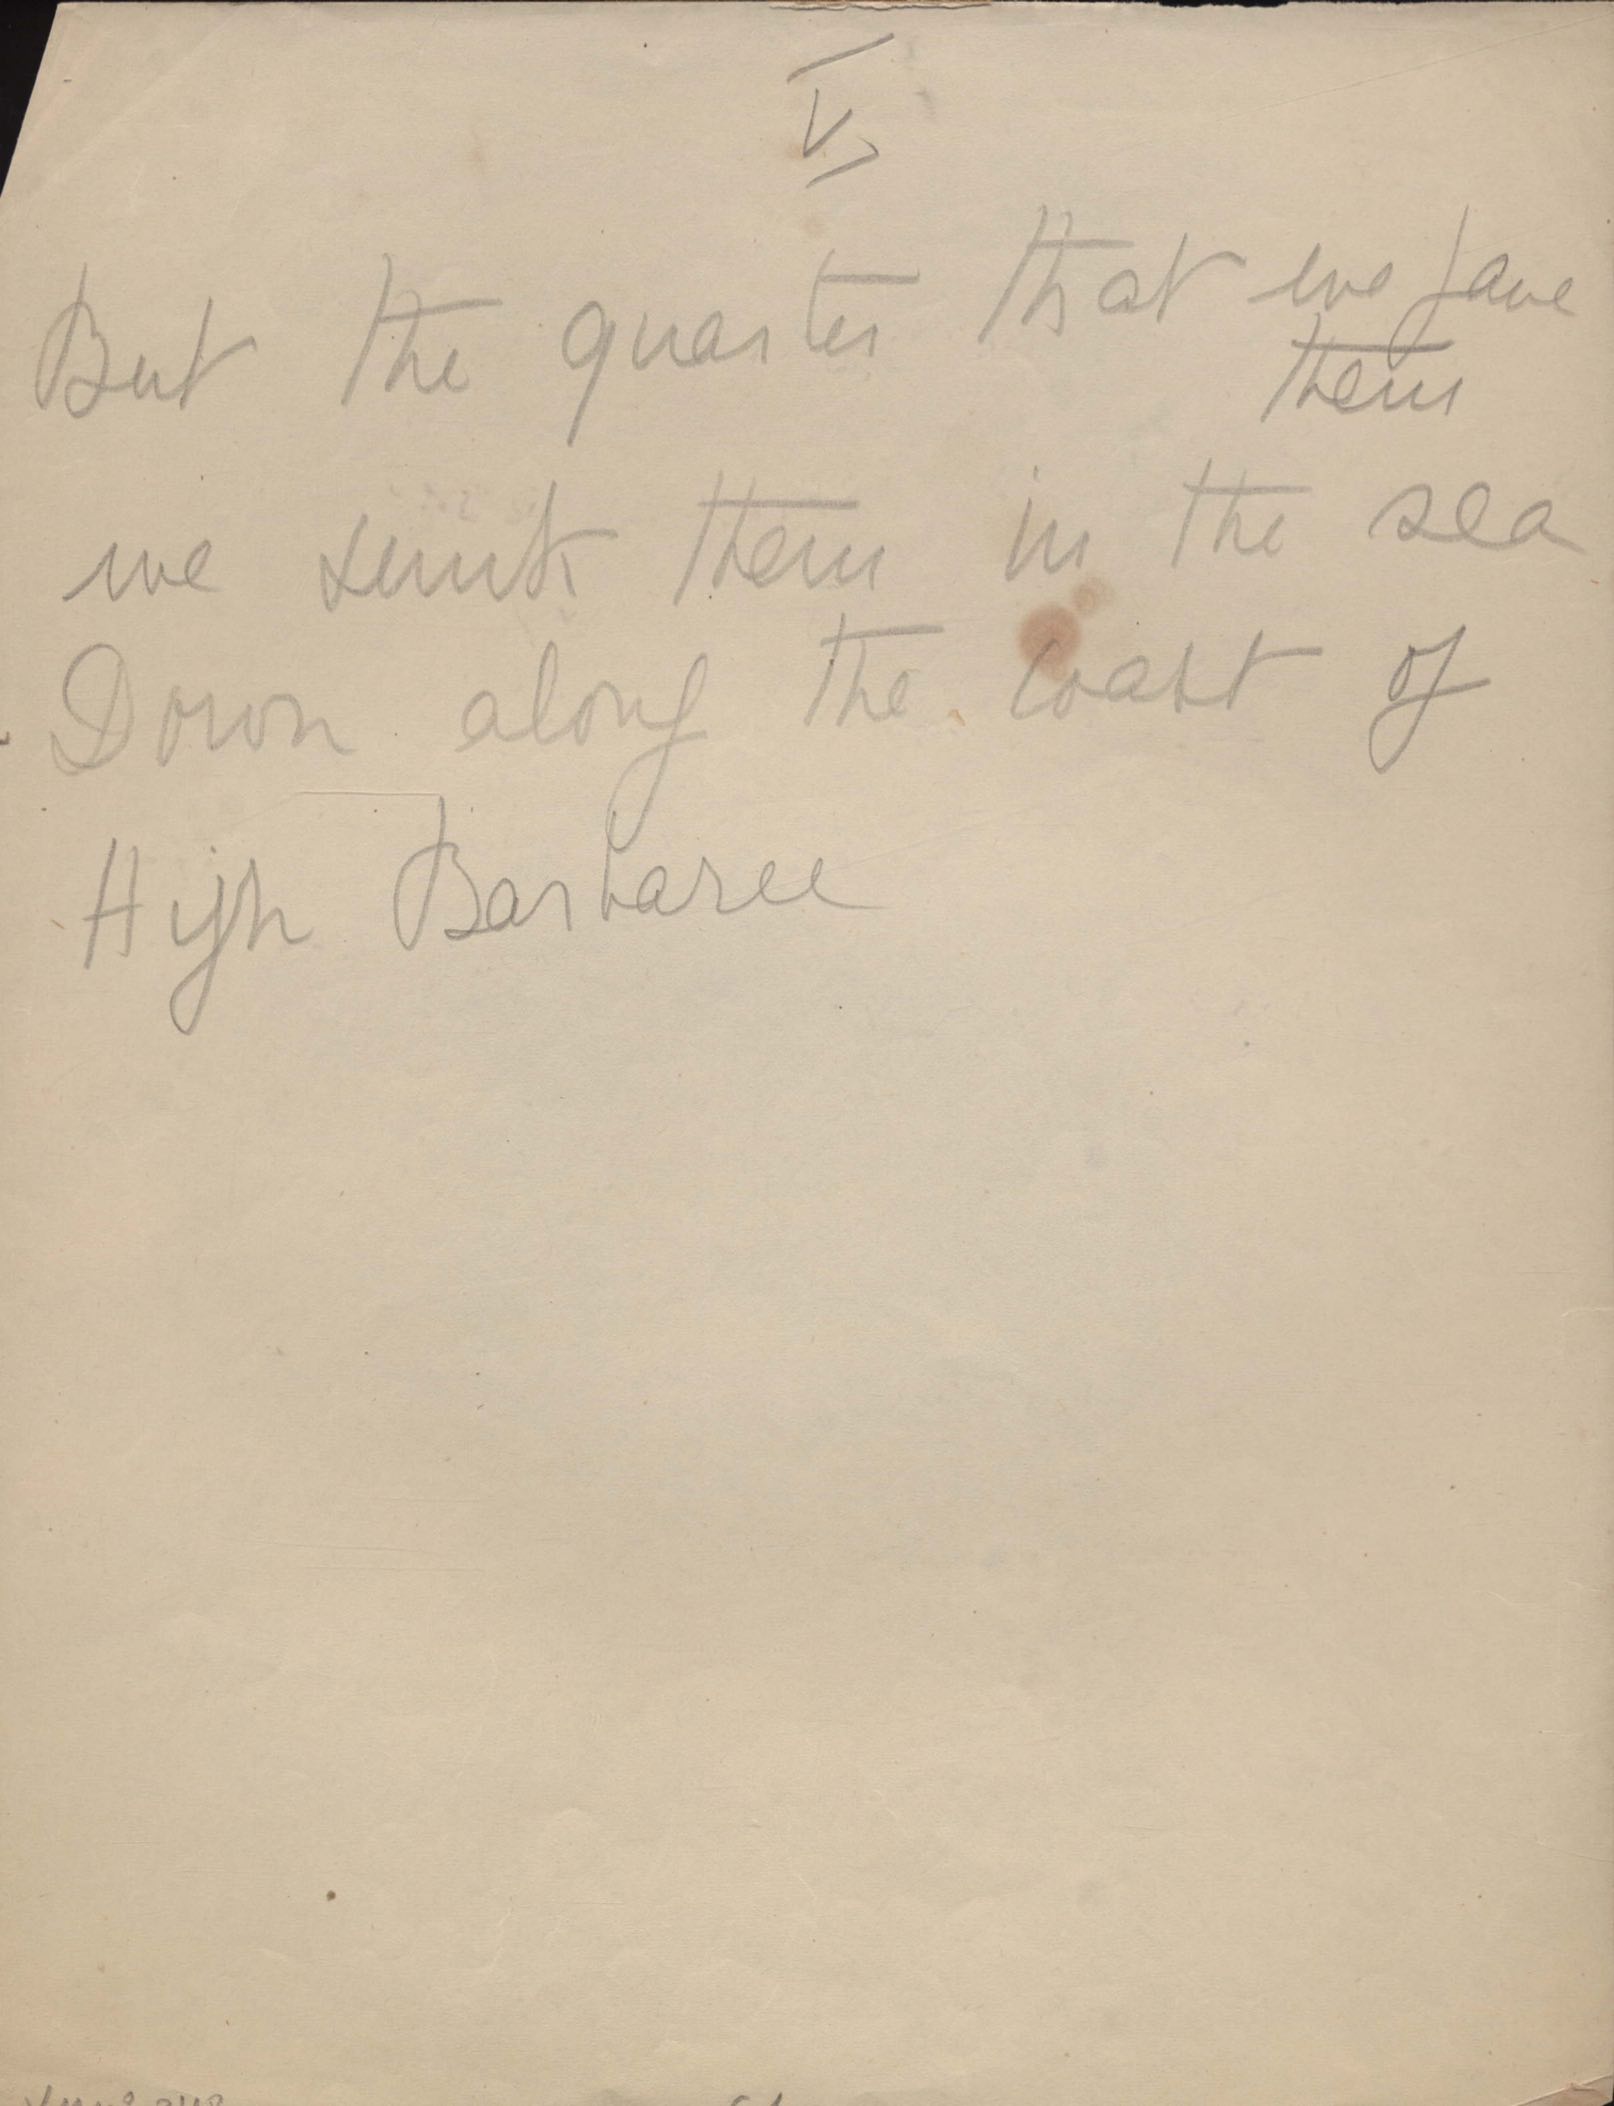 V
But the quarter that we gave
them
we sunk them in the sea
Down along the coast of
High Barbaree